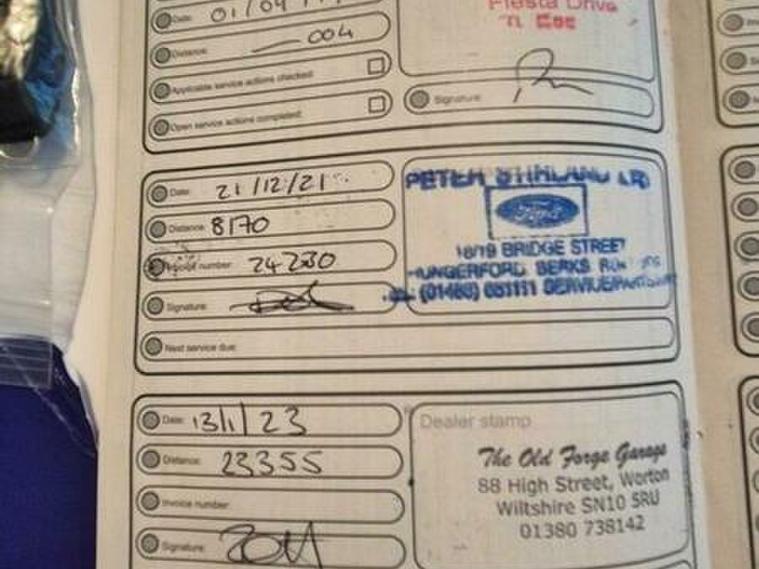 Date: 01/04
Fiesta Drive
Distance: 004
Applicable service actions checked:
Open service actions completed:
Signature:
Date: 21/12/21
Distance: 8170
Invoice number: 24230
Signature:
Next service due:
PETER
Ford
18/19 BRIDGE STREET
HUNGERFORD, BERKS
Date: 13/1/23
Distance: 23355
Invoice number:
Signature:
Dealer stamp
The Old Forge Garage
88 High Street, Worton
Wiltshire SN10 5RU
01380 738142